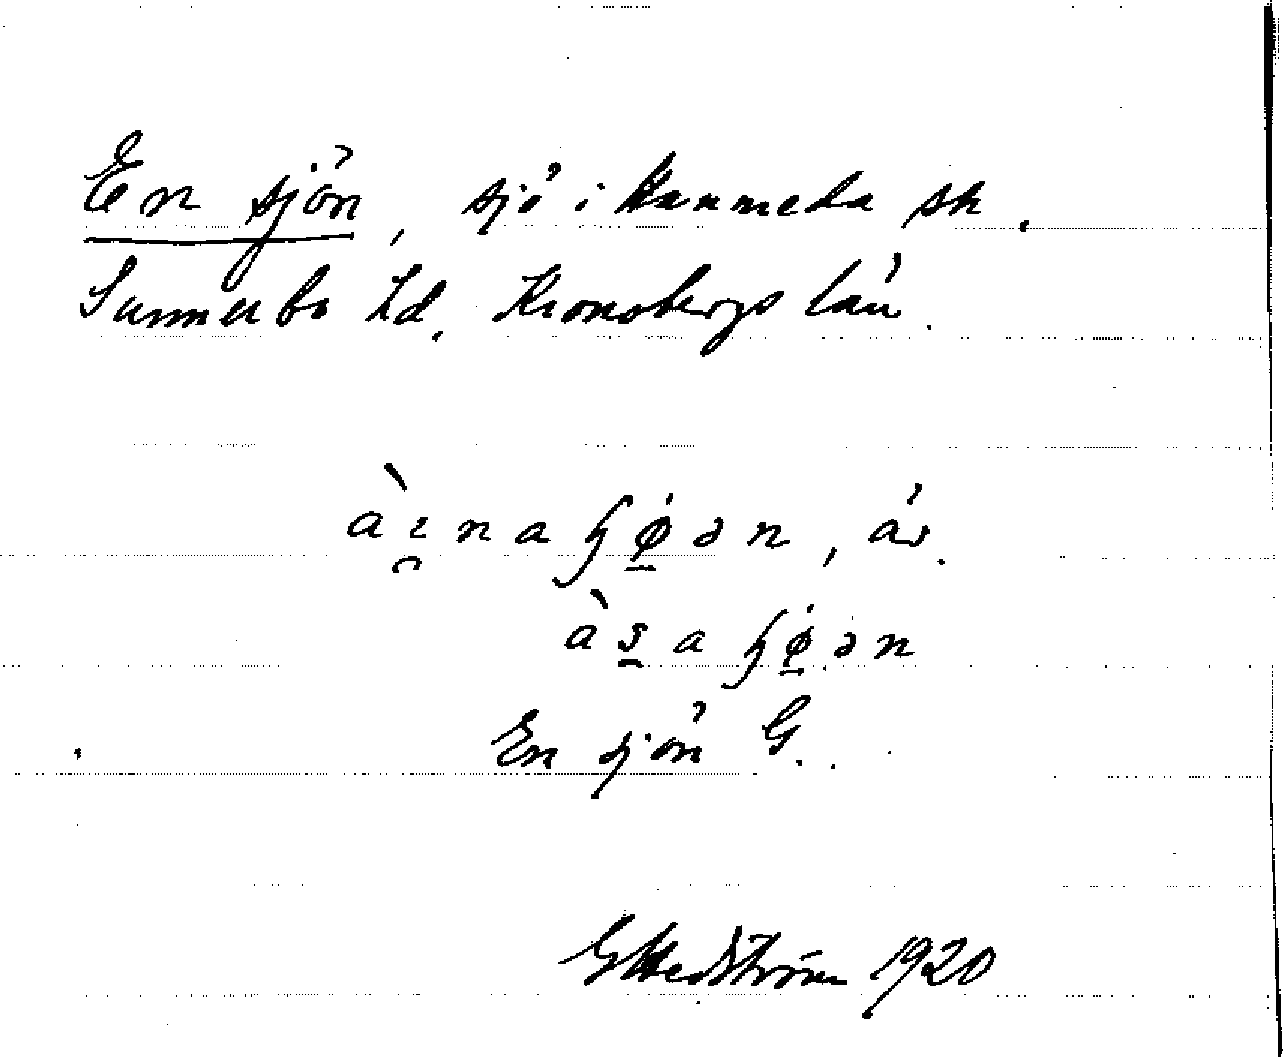 En sjön, sjö i Hamneda sk.
Sunnerbo hd. Kronobergs län.
àɩ̯naɧø̱ən, äv.
às̱aɧø̱ən
En sjön G.
G Hedström 1920